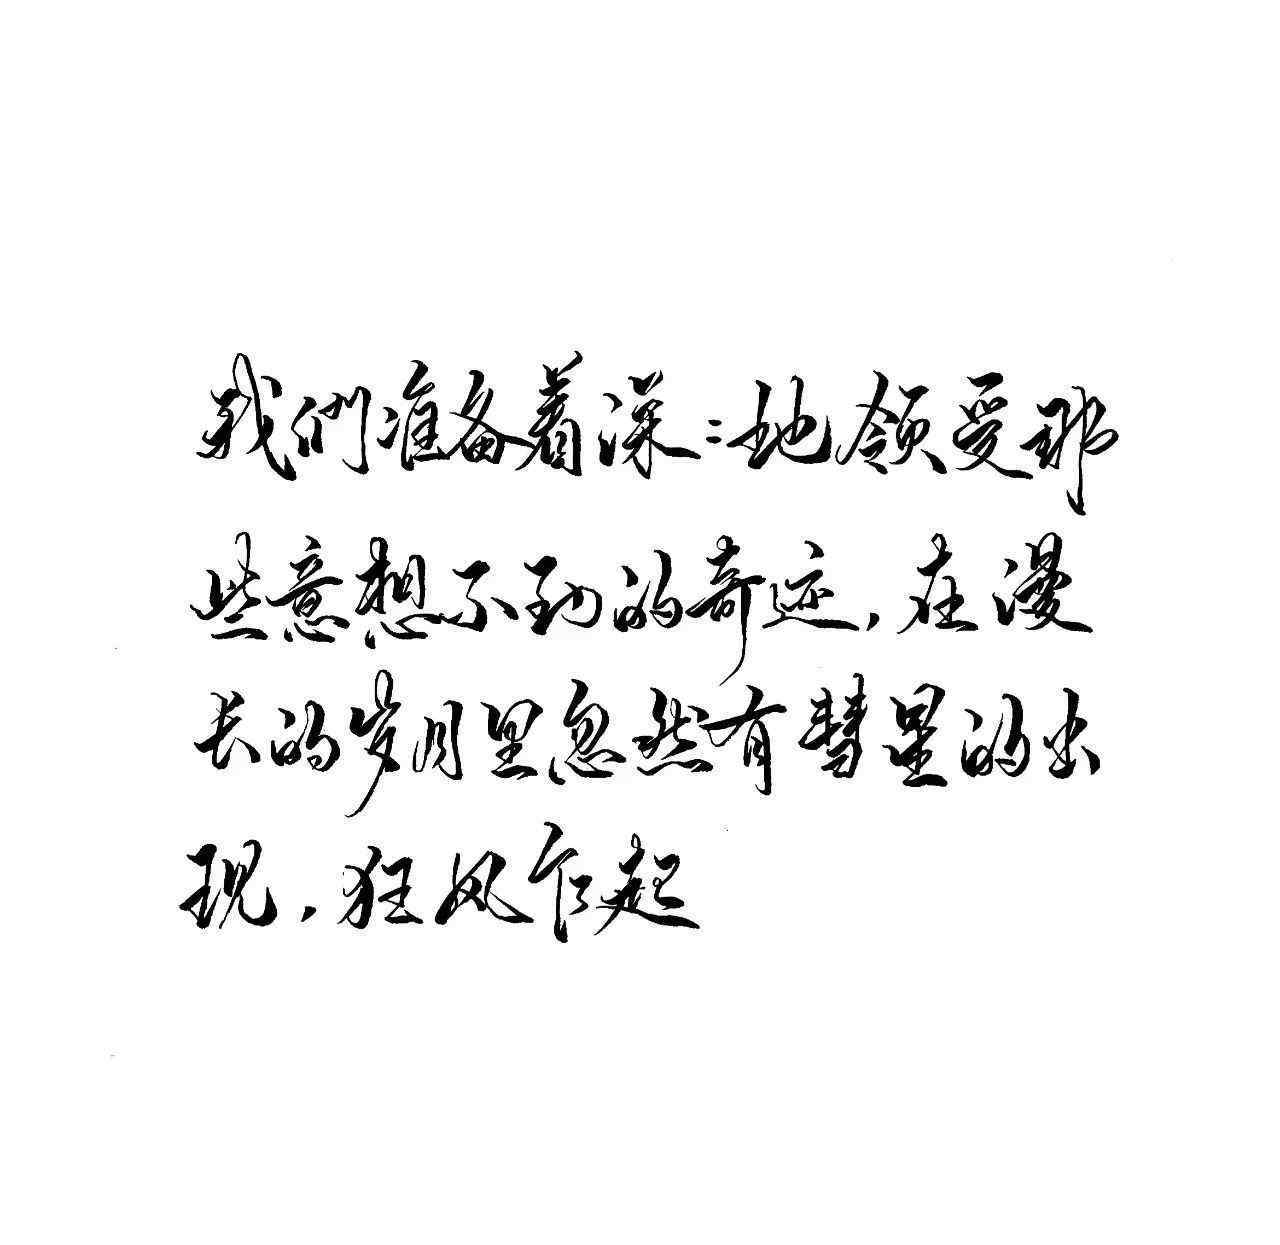 我们准备着深:地领受那
些意想不到的奇迹,在漫
长的岁月里忽然有彗星的出
现,狂风乍起